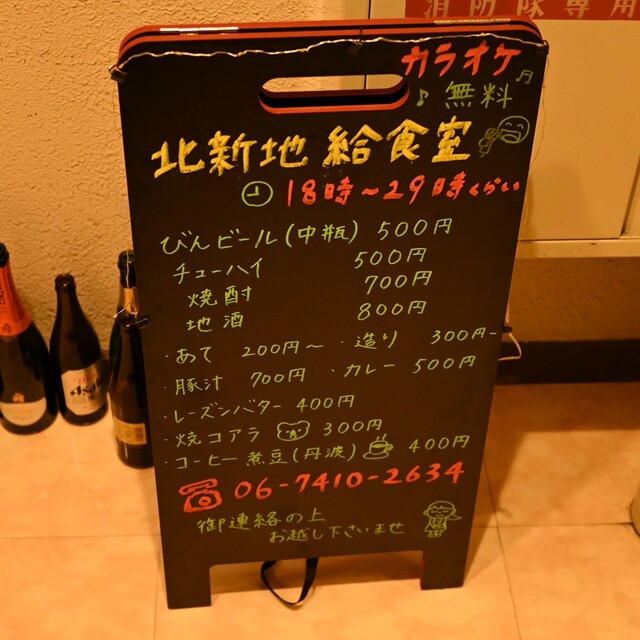 消防隊専用
カラオケ
♪無料♬
北新地 給食室
18時～29時くらい
びんビール(中瓶) 500円
チューハイ 500円
焼酎 700円
地酒 800円
・あて 200円～ ・造り 300円ー
・豚汁 700円 ・カレー 500円
・レーズンバター 400円
・焼コアラ 300円
・コーヒー 煮豆(丹波) 400円
☎ 06-7410-2634
御連絡の上
お越し下さいませ